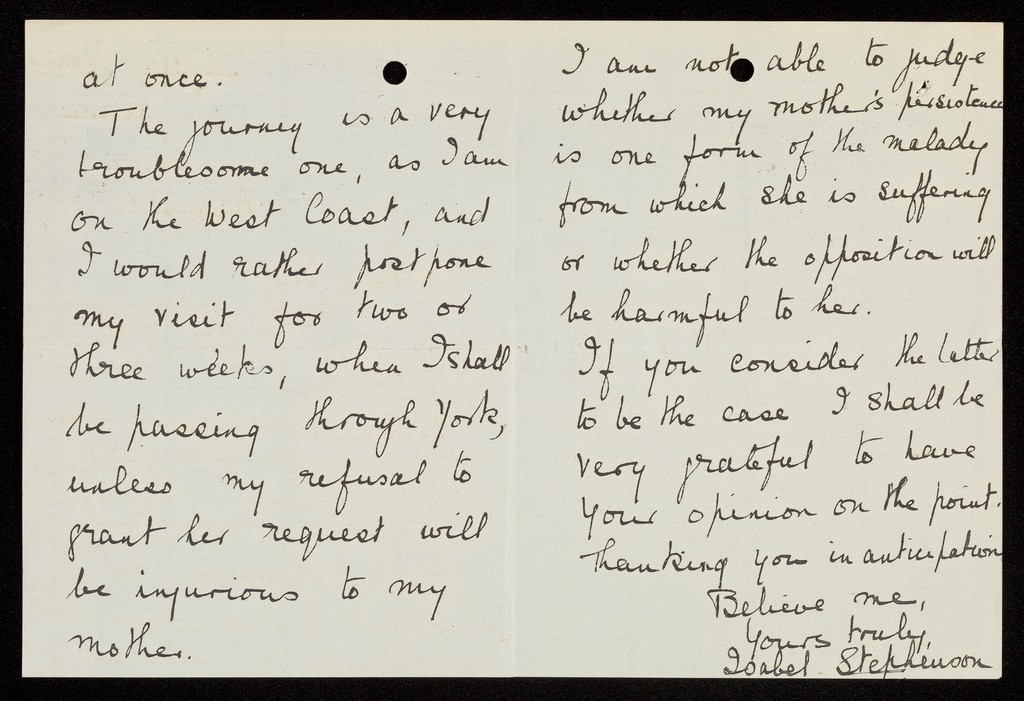 at once.
The journey is a very
troublesome one, as I am
on the West Coast, and
I would rather postpone
my visit for two or
three weeks, when I shall
be passing through York,
unless my refusal to
grant her request will
be injurious to my
mother.
I am not able to judge
whether my mother's persistence
is one form of the malady
from which she is suffering
or whether the opposition will
be harmful to her.
If you consider the latter
to be the case I shall be
very grateful to have
your opinion on the point.
Thanking you in anticipation
Believe me,
Yours truly,
Isabel Stephenson